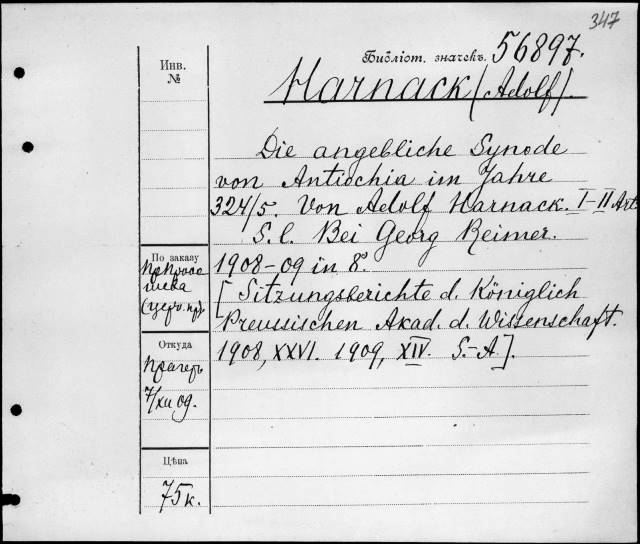 347
Библіот. значекъ. 56897.
Инв.
№
Harnack (Adolf).
Die angebliche Synode
von Antiochia im Jahre
324/5. Von Adolf Harnack. I-II Art.
S. l. Bei Georg Reimer.
1908-09 in 8°.
[Sitzungsberichte d. Königlich
Preussischen Akad. d. Wissenschaft.
1908, XXVI. 1909, XIV. S.-A].
По заказу
(церк. пр).
Откуда
Прагеръ
7/xii 09.
Цѣна
75 к.